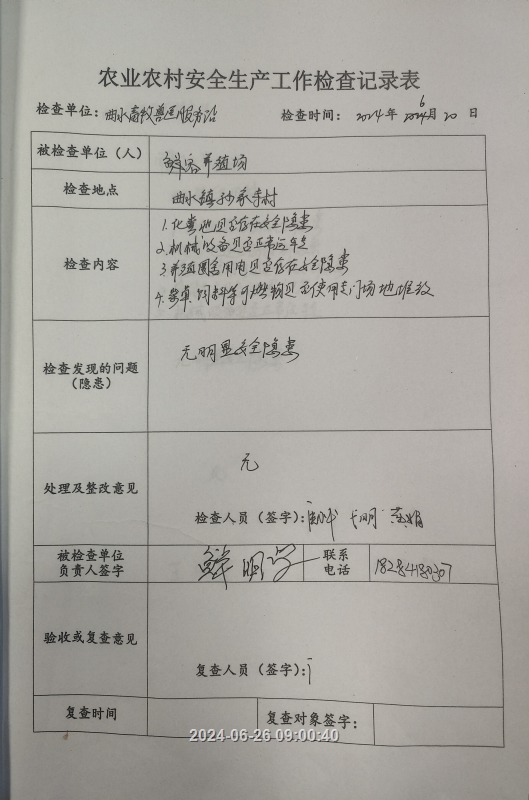 农业农村安全生产工作检查记录表
检查单位：曲水畜牧兽医服务站 检查时间：2024年6月20日
被检查单位（人） 鲜容养殖场
检查地点 曲水镇孙家寺村
检查内容
1.化粪池是否存在安全隐患
2.机械设备是否正常运转
3.养殖圈舍用电是否存在安全隐患
4.柴草饲料等可燃物是否使用专门场地堆放
检查发现的问题
（隐患）
无明显安全隐患
处理及整改意见
无
检查人员（签字）：
被检查单位
负责人签字
鲜明
联系
电话
18284180307
验收或复查意见
复查人员（签字）：
复查时间 复查对象签字：
2024-06-26 09:00:40